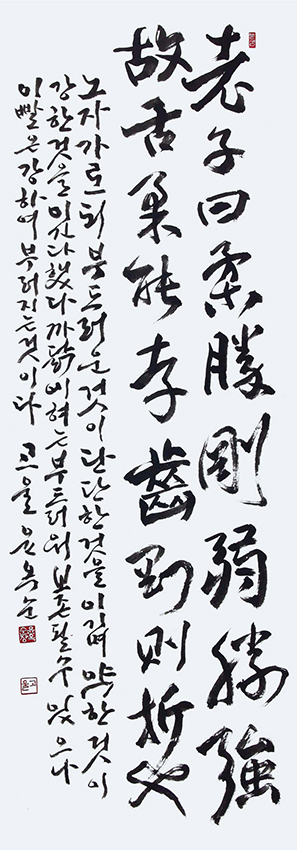 老子曰柔勝剛弱勝強
故舌柔能存齒剛則折也
노자가로되 부드러운것이 단단한것을 이기며 약한것이
강한것을 이긴다했다 까닭에 혀는 부드러워 보존될수 있으나
이빨은 강하여 부러지는것이다